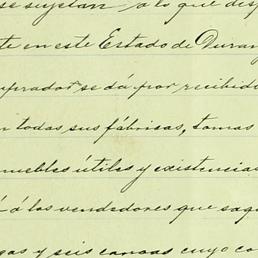 se sujetan a lo que disp
te en este Estado de Duran
mprador se dá por recibido
n todas sus fábricas, tomas
muebles útiles y existencias
á á los vendedores que saqu
gas y seis canoas cuyo co